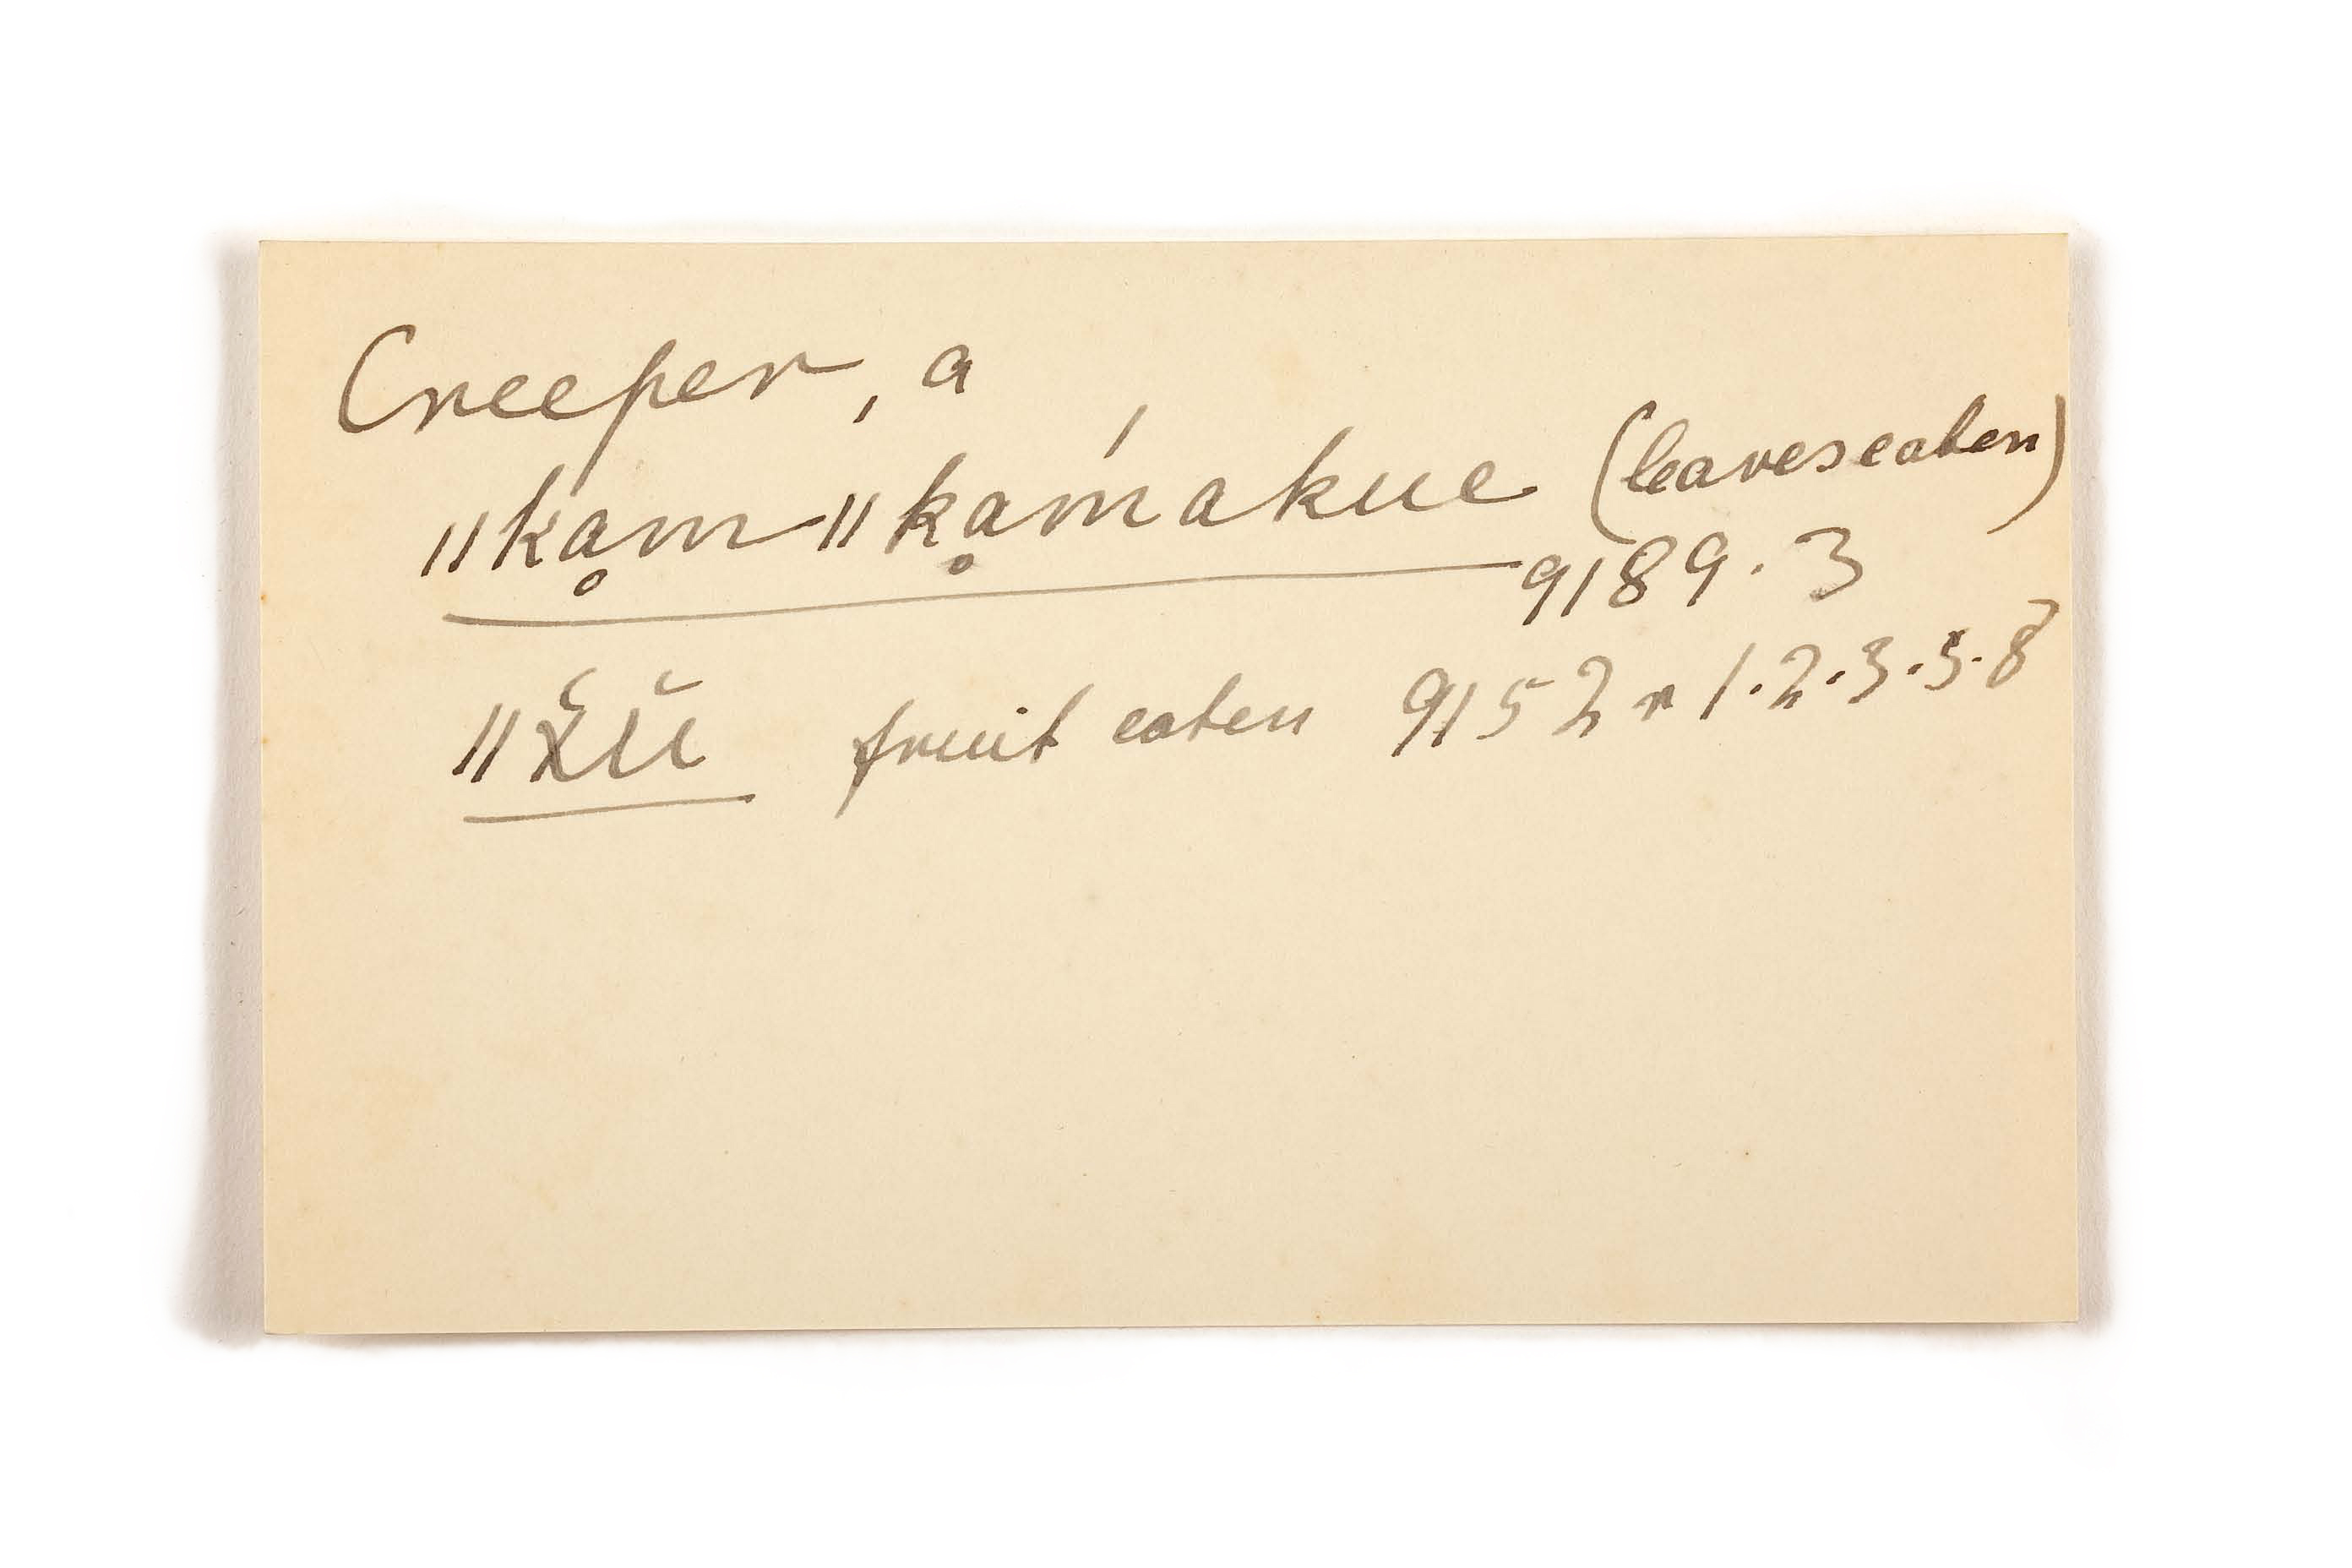 Creeper, a
ǁkḁ́m-ǁkḁm´akue (leaves eaten)
9189.3
ǁx̆ŭ fruit eaten 9152 r 1.2.3.5.8